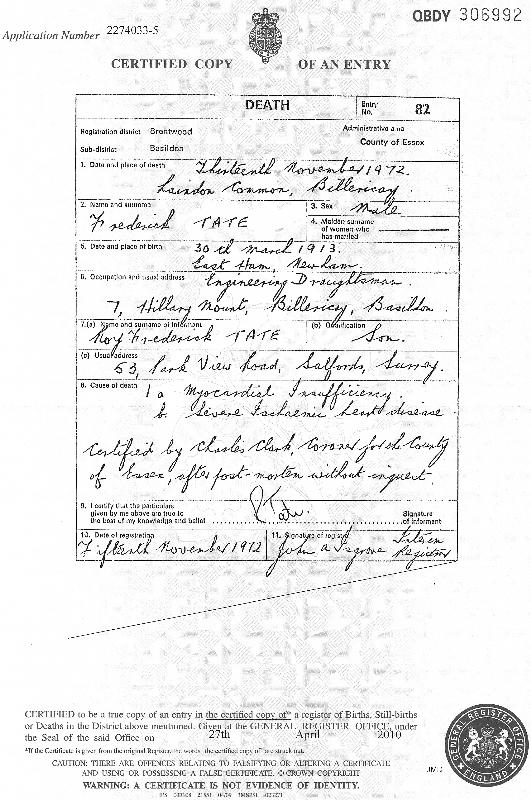 Application Number 2274033-5
QBDY 306992
CERTIFIED COPY OF AN ENTRY
DEATH
Entry No. 82
Registration district Brentwood
Administrative area
Sub-district Basildon
County of Essex
1. Date and place of death Thirteenth November 1972.
Laindon Common, Billericay.
2. Name and surname
Frederick TATE
3. Sex Male
4. Maiden surname
of women who
has married
5. Date and place of birth 30th March 1913.
East Ham, Newham.
6. Occupation and usual address Engineering Draughtsman.
7, Hillary Mount, Billericay, Basildon.
7.(a) Name and surname of informant
Roy Frederick TATE
(b) Qualification
Son.
(c) Usual address
53, Park View Road, Salfords, Surrey.
8. Cause of death 1 a Myocardial Insufficiency
b. Severe Ischaemic heart disease.
Certified by Charles Clark, Coroner for the County
of Essex, after post-mortem without inquest.
9. I certify that the particulars
given by me above are true to
the best of my knowledge and belief
Tate.
Signature
of informant
10. Date of registration
Fifteenth November 1972
11. Signature of registrar
John A
Registrar
CERTIFIED to be a true copy of an entry in the certified copy of* a register of Births, Still-births
or Deaths in the District above mentioned. Given at the GENERAL REGISTER OFFICE, under
the Seal of the said Office on 27th April 2010
*If the Certificate is given from the original Register, the words the certified copy of are struck out.
CAUTION: THERE ARE OFFENCES RELATING TO FALSIFYING OR ALTERING A CERTIFICATE
AND USING OR POSSESSING A FALSE CERTIFICATE. ©CROWN COPYRIGHT
WARNING: A CERTIFICATE IS NOT EVIDENCE OF IDENTITY.
GENERAL REGISTER OFFICE
ENGLAND